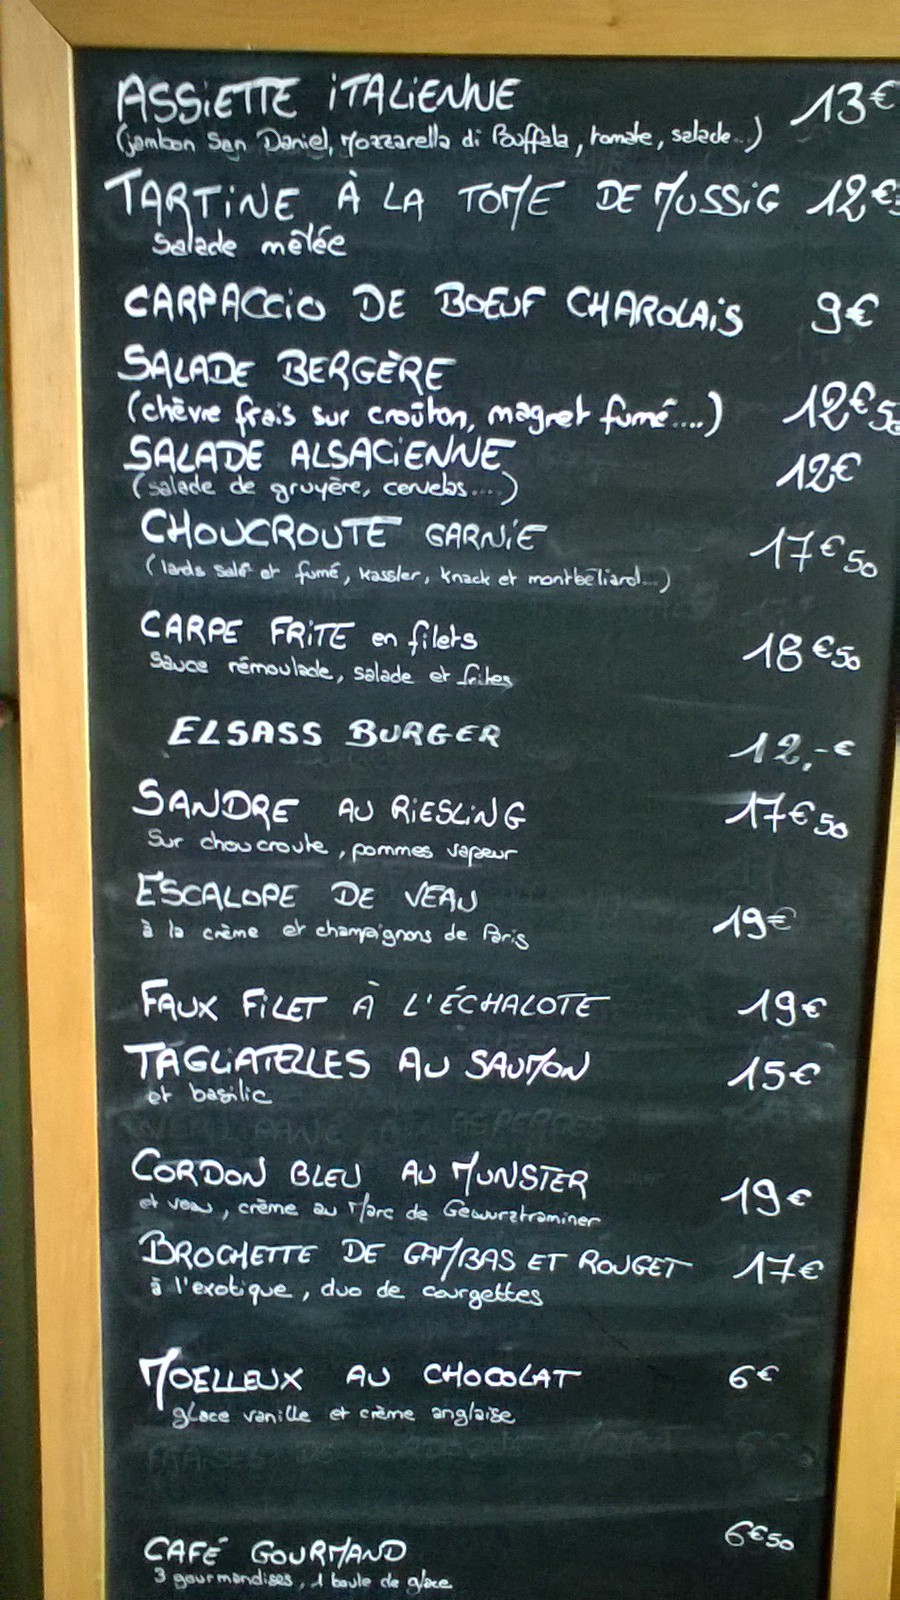 ASSIETTE ITALIENNE 13€
(jambon San Daniel, Mozzarella di Bouffala, tomate, salade..)
TARTINE À LA TOME DE MUSSIG 12€
Salade mêlée
CARPACCIO DE BOEUF CHAROLAIS 9€
SALADE BERGÈRE
(chèvre frais sur croûton, magret fumé....) 12€50
SALADE ALSACIENNE 12€
(salade de gruyère, cervelas....)
CHOUCROUTE GARNIE 17€50
(lards salé et fumé, kassler, knack et montbéliard...)
CARPE FRITE en filets 18€50
Sauce rémoulade, salade et frites
ELSASS BURGER 12,-€
SANDRE AU RIESLING 17€50
Sur choucroute, pommes vapeur
ESCALOPE DE VEAU 19€
à la crème et champignons de Paris
FAUX FILET À L'ÉCHALOTE 19€
TAGLIATELLES AU SAUMON 15€
et basilic
CORDON BLEU AU MUNSTER 19€
et veau, crème au Marc de Gewurztraminer
BROCHETTE DE GAMBAS ET ROUGET 17€
à l'exotique, duo de courgettes
MOELLEUX AU CHOCOLAT 6€
glace vanille et crème anglaise
CAFÉ GOURMAND 6€50
3 gourmandises, 1 boule de glace